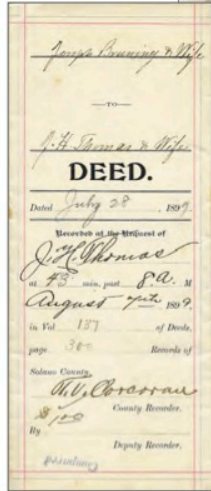 Joseph Bruning & Wife
—TO—
J. H. Thomas & Wife
DEED.
Dated July 28, 1899
Recorded at the Request of
J. H. Thomas
at 43 min. past 8. A. M
August 1899.
in Vol 137 of Deeds,
page 300 Records of
Solano County.
County Recorder.
$1.00
By
Deputy Recorder.